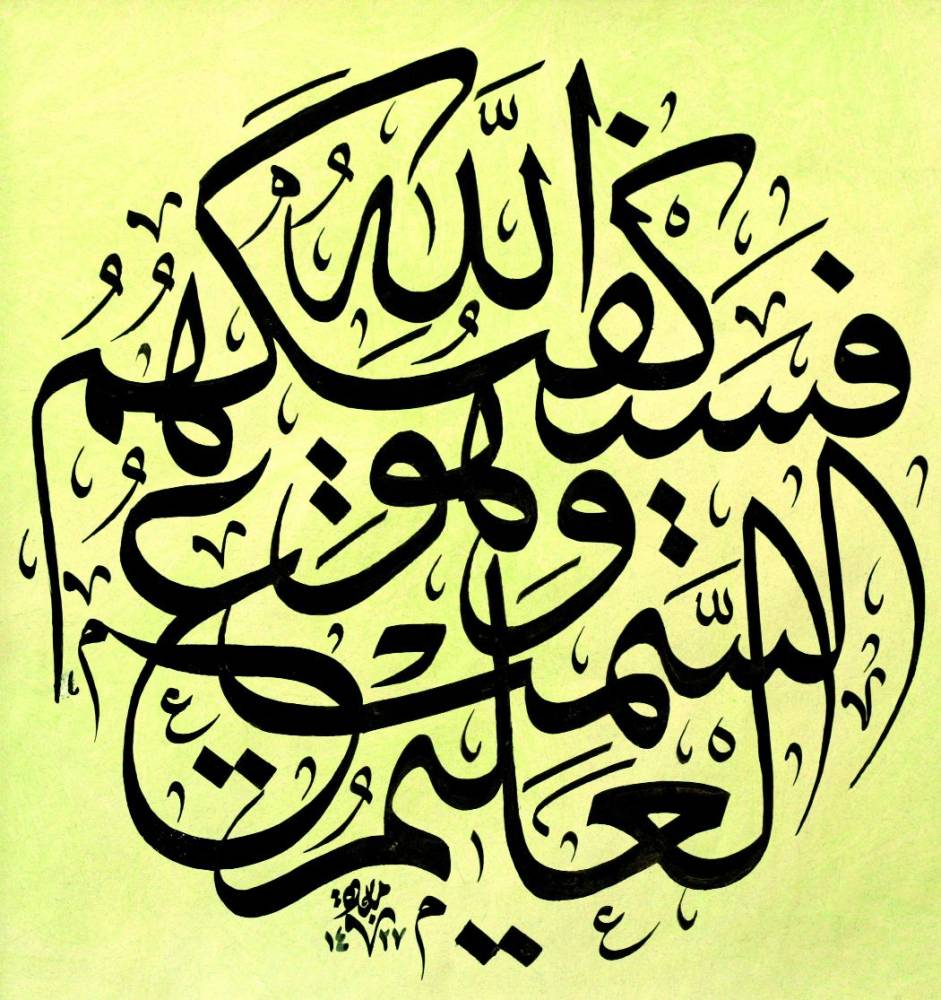 فَسَيَكْفِيكَهُمُ اللَّهُ
وَهُوَ السَّمِيعُ
الْعَلِيمُ
١٤٢٧